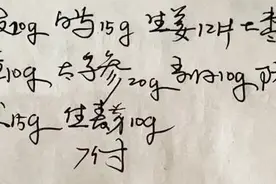 10g 白芍15g 生姜12片 大枣
10g 太子参20g 10g
15g 生麦芽10g
7付